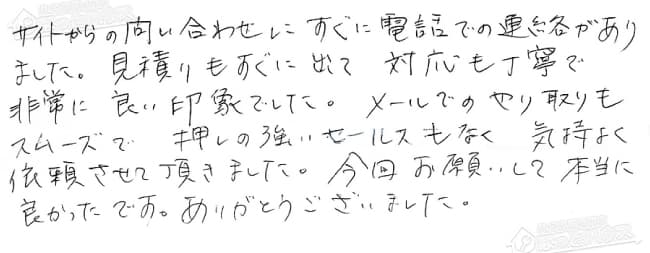 サイトからの問い合わせにすぐに電話での連絡があり
ました。見積りもすぐに出て 対応も丁寧で
非常に良い印象でした。メールでのやり取りも
スムーズで 押しの強いセールスもなく 気持よく
依頼させて頂きました。今回お願いして本当に
良かったです。ありがとうございました。